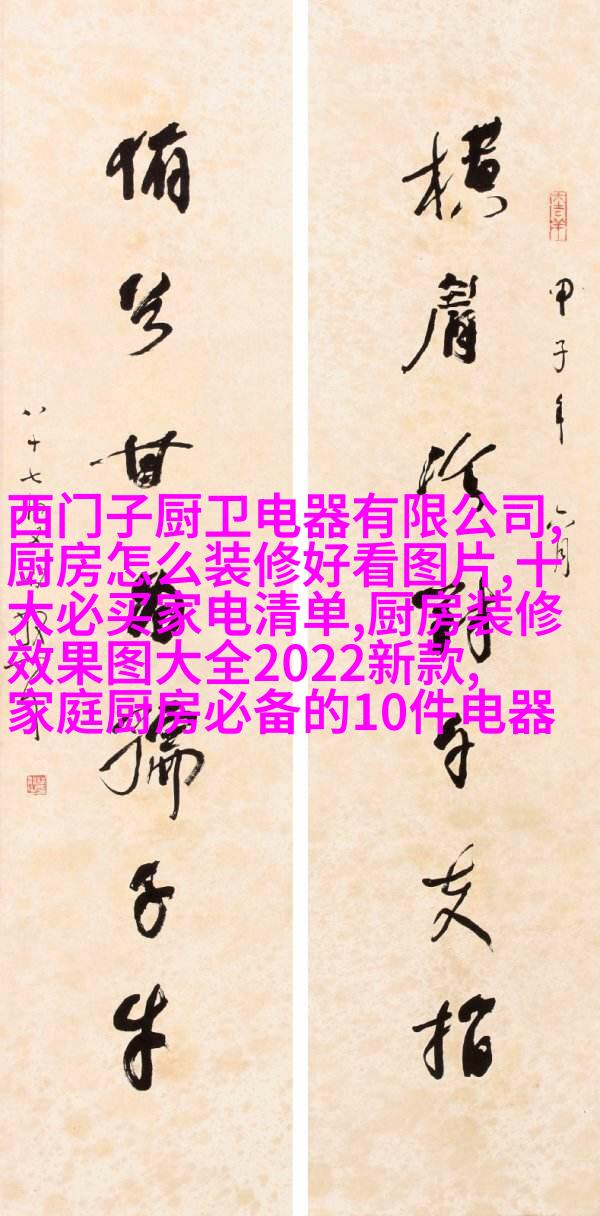 甲子年六月
橫眉冷對千夫指
俯首甘為孺子牛
八十七
西门子厨卫电器有限公司,
厨房怎么装修好看图片,十
大必买家电清单,厨房装修
效果图大全2022新款,
家庭厨房必备的10件电器